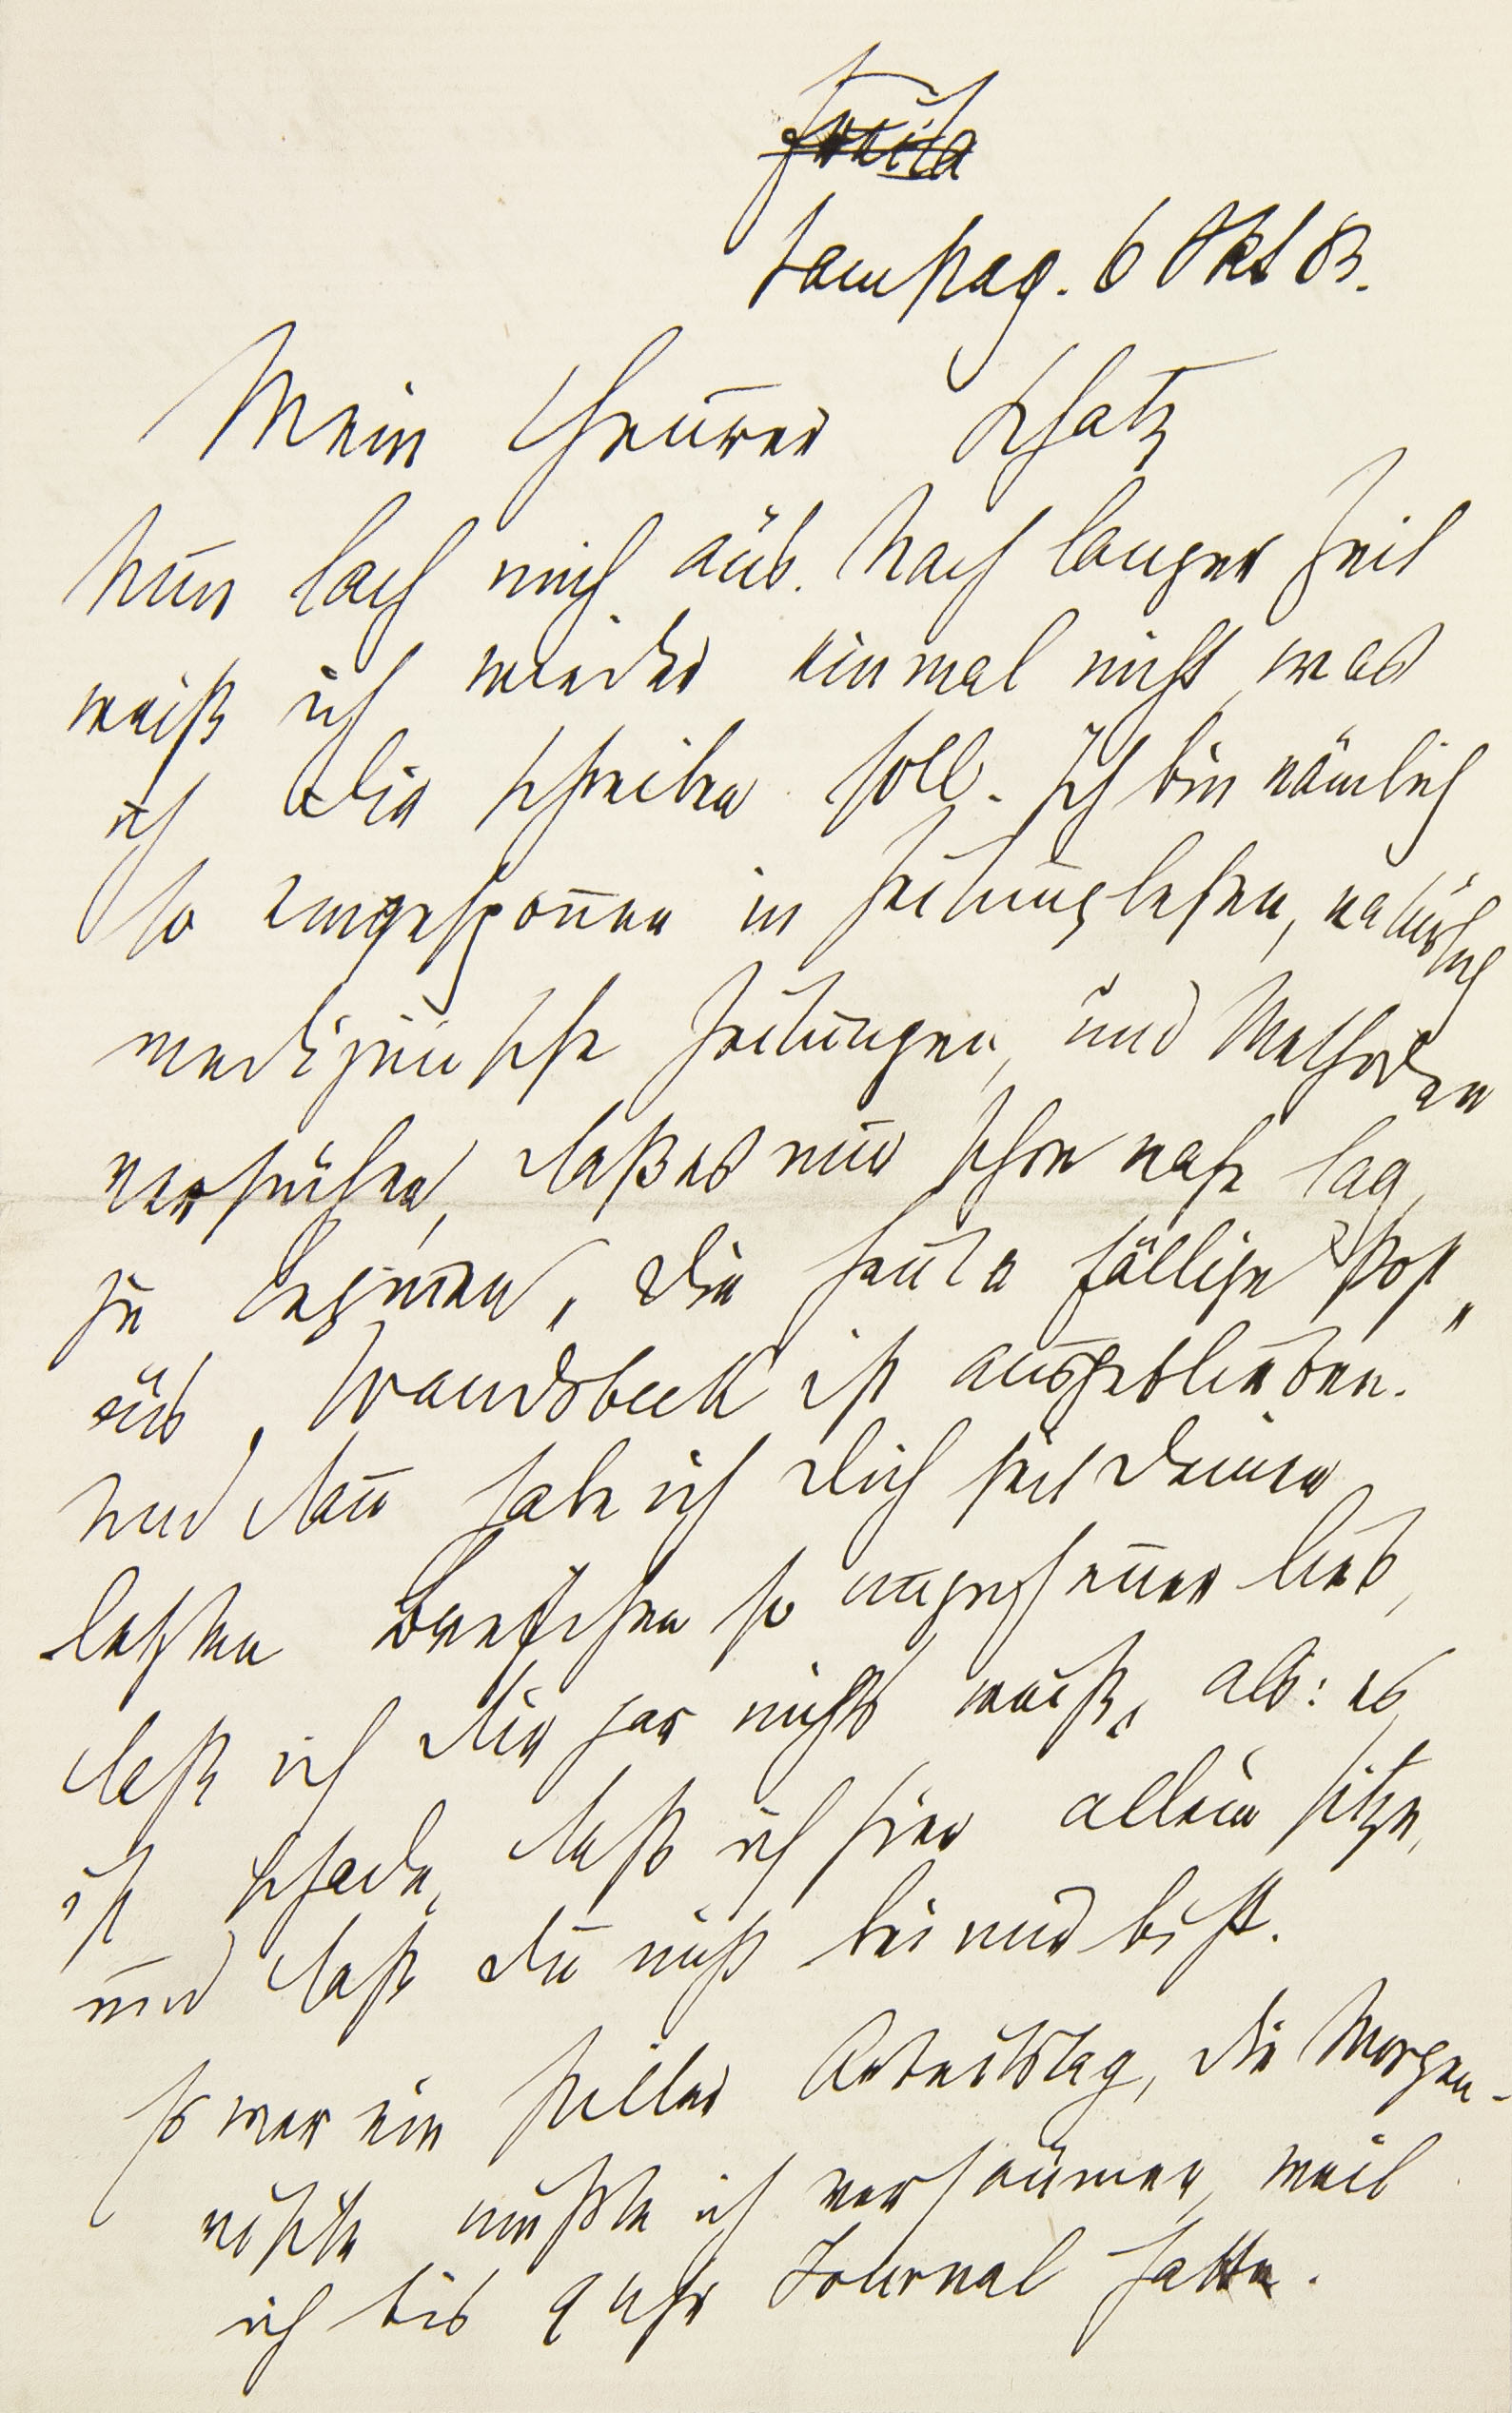 Samstag. 6 Okt 83.
Mein theurer Schatz
Nun lach mich aus. Nach langer Zeit
weiß ich wieder einmal nicht, was
ich Dir schreiben soll. Ich bin nämlich
so eingesponnen in Zeitunglesen, natürlich
medizinische Zeitungen, und Methoden
versuchen, daß es mir schon nahe lag
zu beginnen, die heute fällige Post
aus Wandsbeck ist ausgeblieben.
Und dann habe ich Dich seit Deinem
letzten Briefchen so ungeheuer lieb,
daß ich Dir gar nichts weiß, als: es
ist schade, daß ich hier allein sitze,
und daß Du nicht bei mir bist.
Es war ein stiller Arbeitstag, die Morgen-
visite mußte ich versäumen, weil
ich bis 9 Uhr Journal hatte.